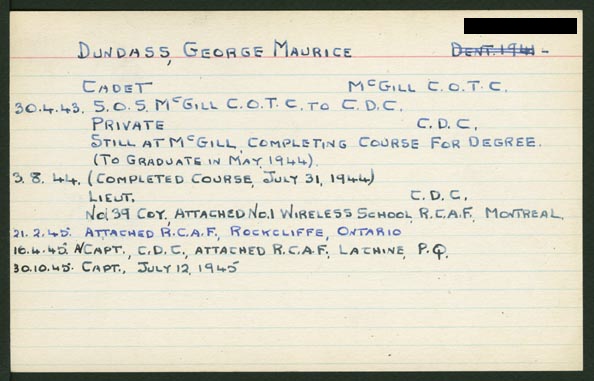 DUNDASS, GEORGE MAURICE DENT. 1944 -
CADET McGILL C.O.T.C.
30.4.43. S.O.S. McGILL C.O.T.C. TO C.D.C.
PRIVATE C.D.C.
STILL AT McGILL, COMPLETING COURSE FOR DEGREE.
(TO GRADUATE IN MAY, 1944).
3.8.44. (COMPLETED COURSE, JULY 31, 1944)
LIEUT. C.D.C.
No. 39 COY. ATTACHED No.1 WIRELESS SCHOOL, R.C.A.F., MONTREAL.
21.2.45. ATTACHED R.C.A.F., ROCKCLIFFE, ONTARIO
16.4.45. A/CAPT., C.D.C., ATTACHED R.C.A.F. LACHINE, P.Q.
30.10.45. CAPT., JULY 12, 1945